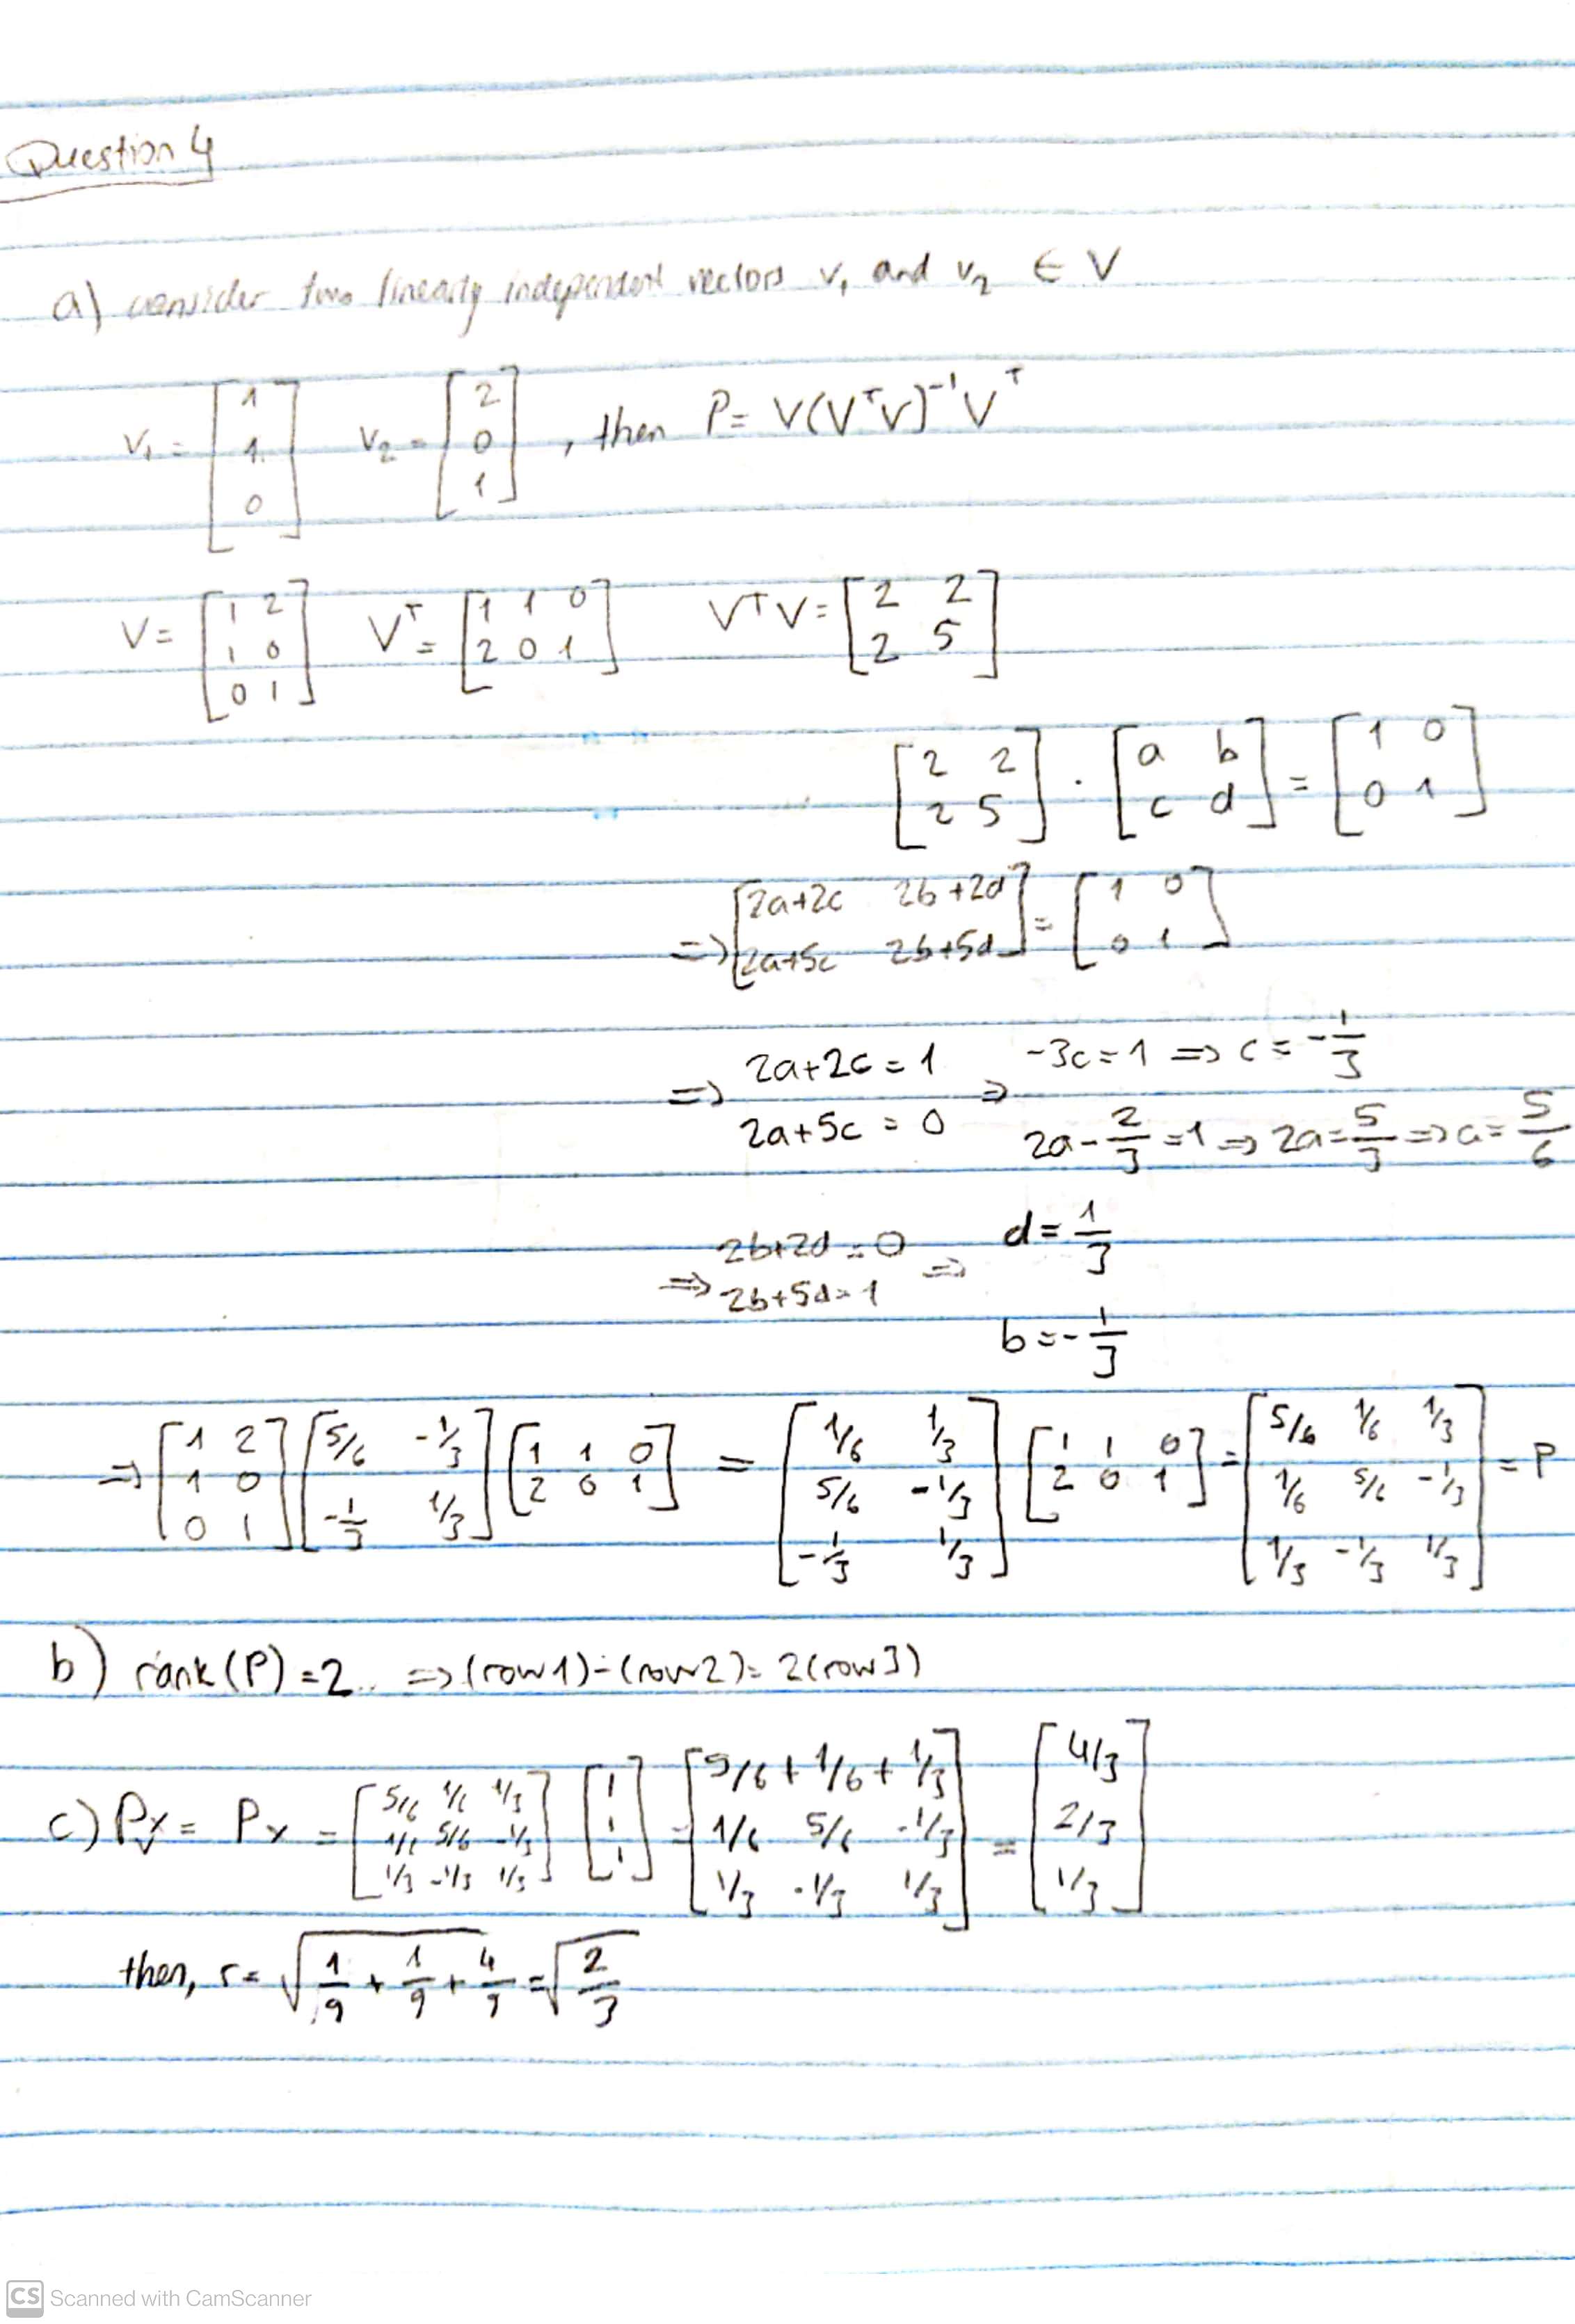 Question 4
a) consider two linearly independent vectors v₁ and v₂ ∈ V
v₁ = [1; 1; 0] v₂ = [2; 0; 1], then P = V(VᵀV)⁻¹Vᵀ
V = [1 2; 1 0; 0 1] Vᵀ = [1 1 0; 2 0 1] VᵀV = [2 2; 2 5]
[2 2; 2 5] · [a b; c d] = [1 0; 0 1]
=> [2a+2c 2b+2d; 2a+5c 2b+5d] = [1 0; 0 1]
=> 2a+2c = 1 => -3c = 1 => c = -1/3
2a+5c = 0 2a - 2/3 = 1 => 2a = 5/3 => a = 5/6
=> 2b+2d = 0 => d = 1/3
2b+5d = 1
b = -1/3
=> [1 2; 1 0; 0 1] [5/6 -1/3; -1/3 1/3] [1 1 0; 2 0 1] = [1/6 1/3; 5/6 -1/3; -1/3 1/3] [1 1 0; 2 0 1] = [5/6 1/6 1/3; 1/6 5/6 -1/3; 1/3 -1/3 1/3] = P
b) rank(P) = 2 .. => (row1) - (row2) = 2(row3)
c) Pᵥx = Px = [5/6 1/6 1/3; 1/6 5/6 -1/3; 1/3 -1/3 1/3] [1; 1; 1] = [5/6 + 1/6 + 1/3; 1/6 5/6 -1/3; 1/3 -1/3 1/3] = [4/3; 2/3; 1/3]
then, r = √(1/9 + 1/9 + 4/9) = √(2/3)
CS Scanned with CamScanner